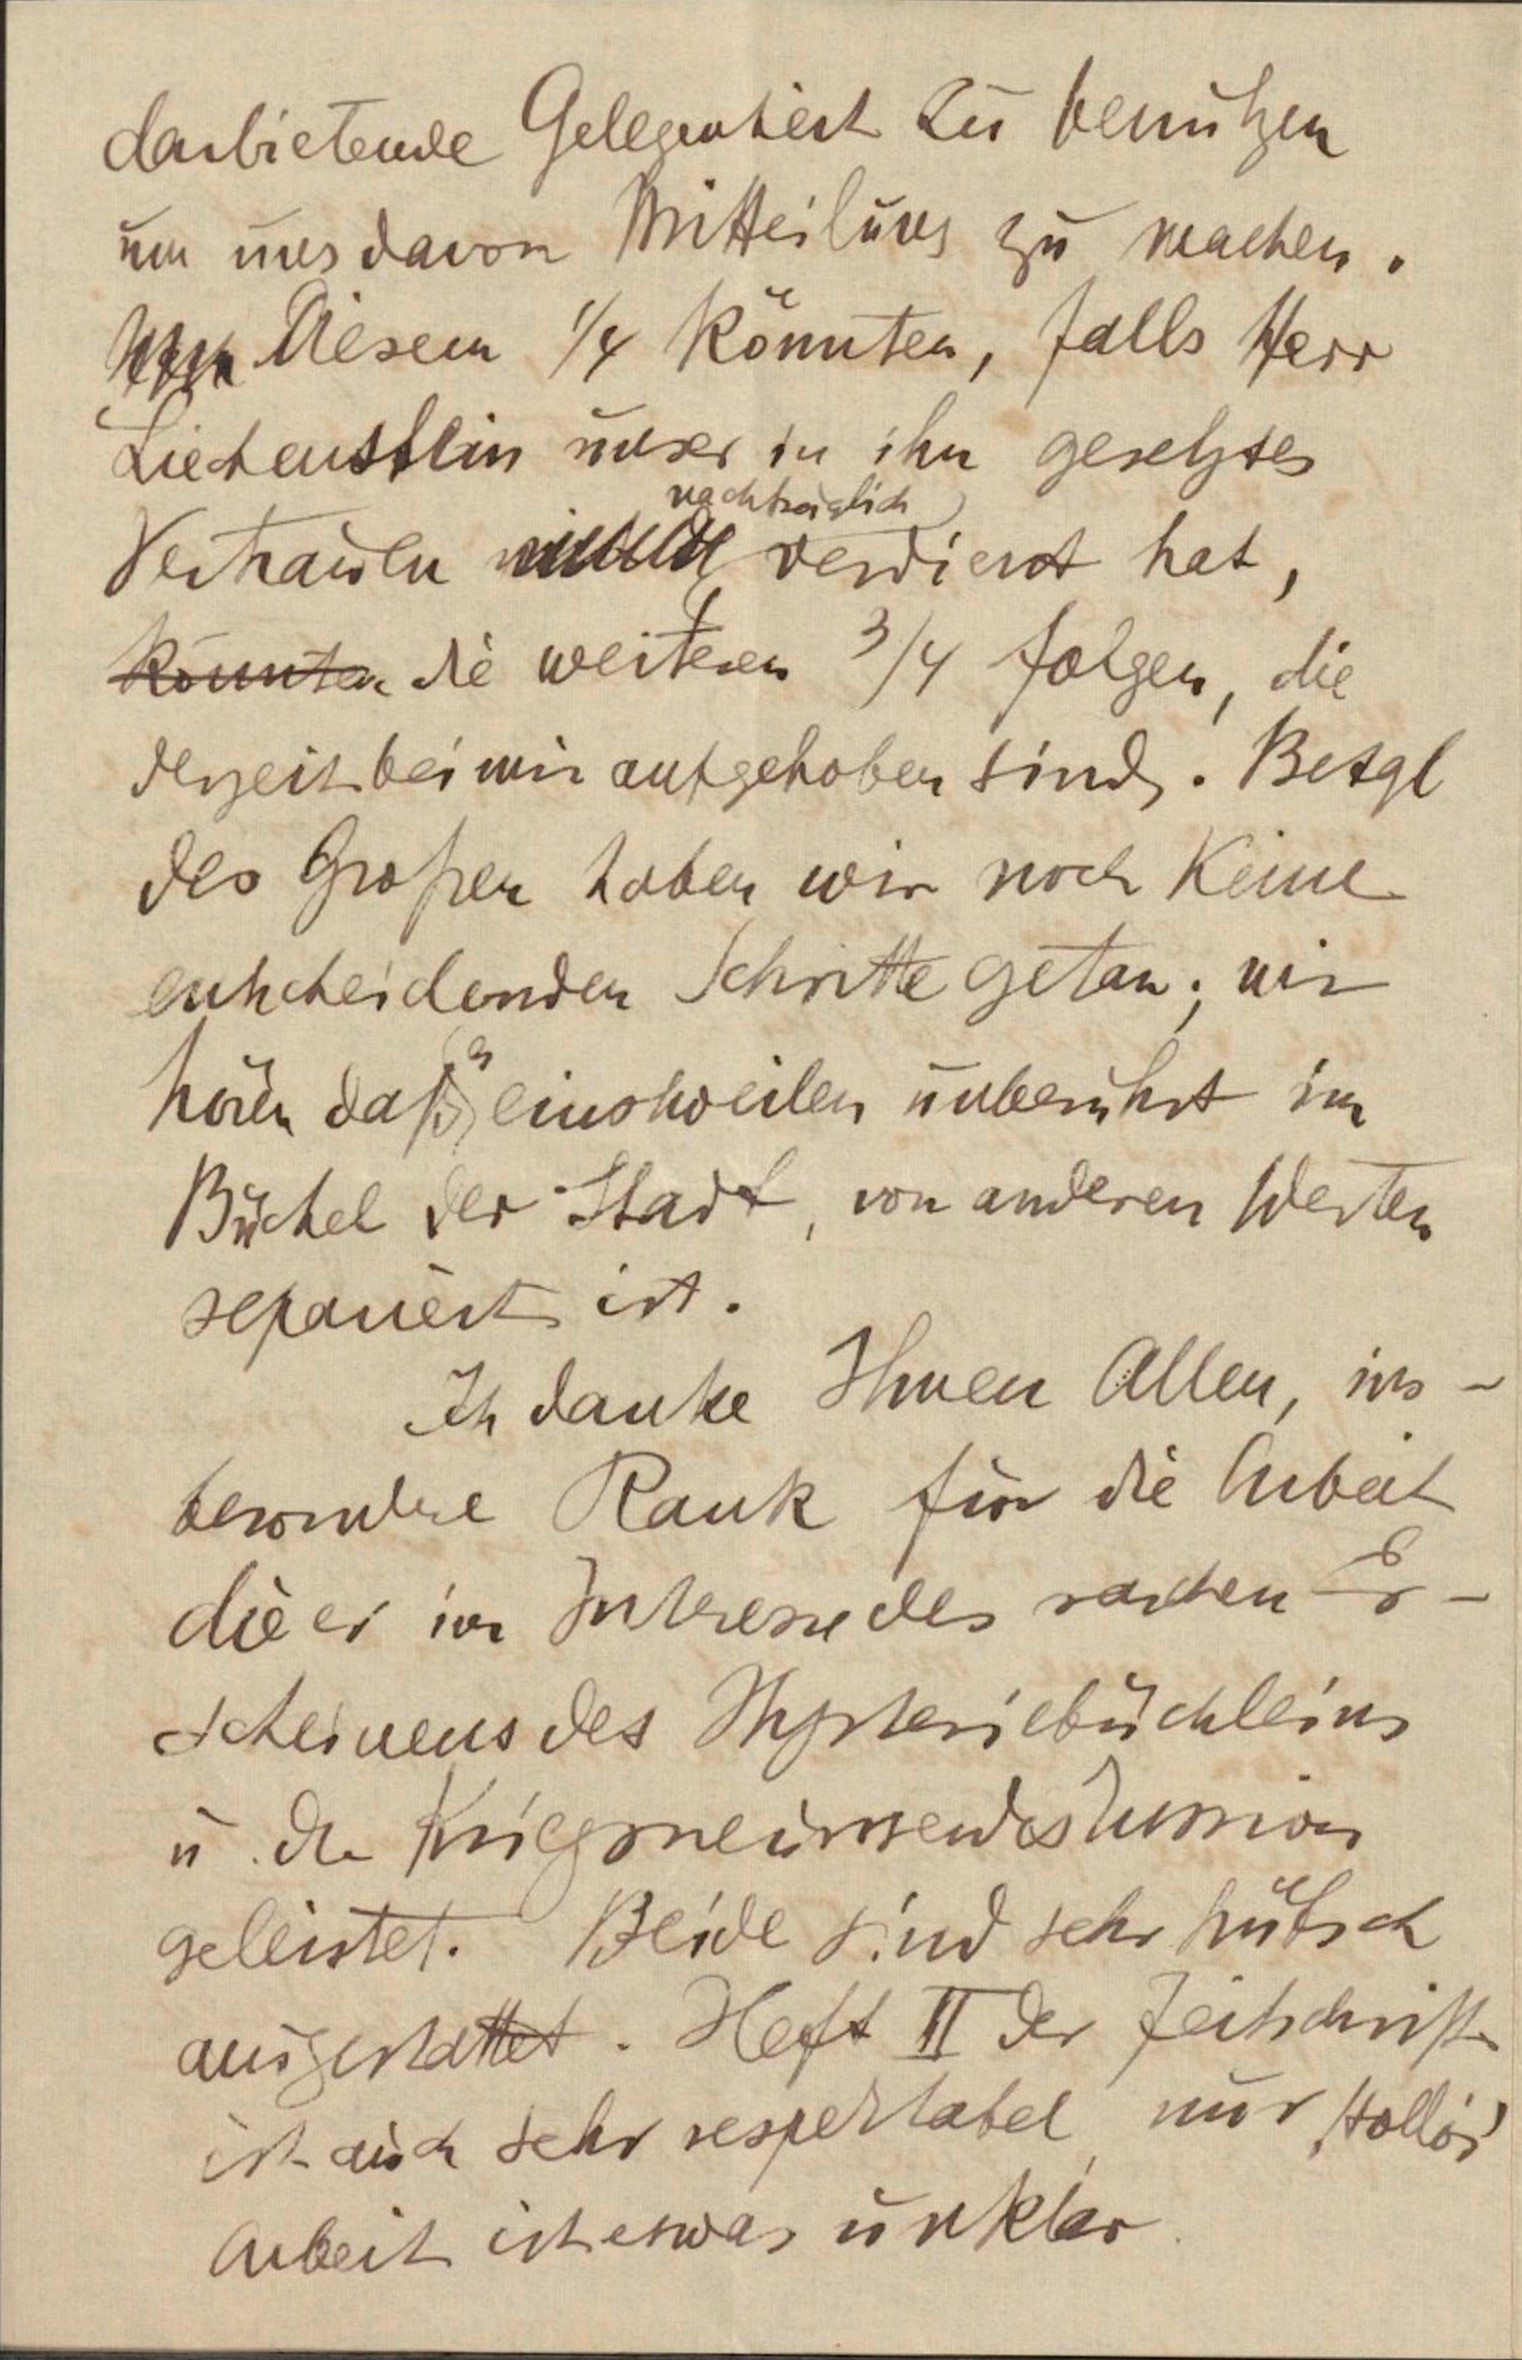 darbietende Gelegenheit zu benützen
um uns davon Mitteilung zu machen.
Diesem 1/4 könnten, falls Herr
Liechenstein unser in ihn gesetztes
Vertrauen nachträglich verdient hat,
könnten die weiteren 3/4 folgen, die
derzeit bei mir aufgehoben sind. Betgl
des Großen haben wir noch keine
entscheidenden Schritte getan; wir
hören daß er einstweilen unberührt im
Büchel der Stadt, von anderen Werten
separiert ist.
Ich danke Ihnen Allen, ins-
besondere Rank für die Arbeit
die er im Interesse des raschen Er-
scheinens des Hysteriebüchleins
u. der Kriegsneurosendiskussion
geleistet. Beide sind sehr hübsch
ausgestattet. Heft II der Zeitschrift
ist auch sehr respektabel, nur Hollós'
Arbeit ist etwas unklar.